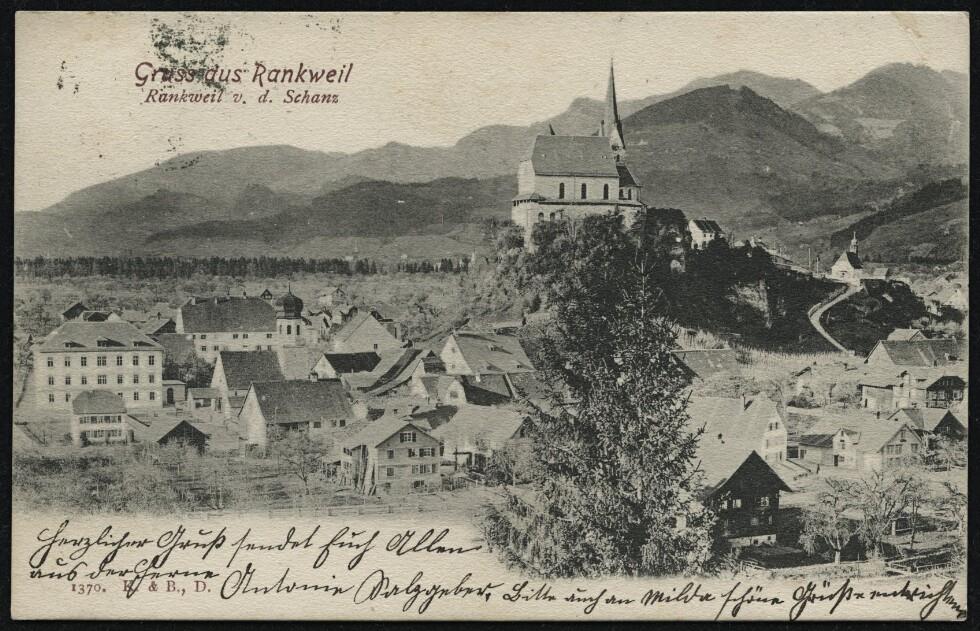 Gruss aus Rankweil
Rankweil v. d. Schanz
Herzlicher Gruß sendet Euch Allen
aus der Ferne Antonie Salzgeber. Bitte auch an Milda schöne Grüße entrichten
1370. K. & B., D.